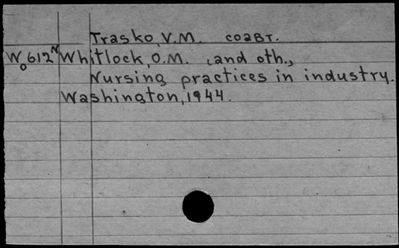 Trasko, V.M. соавт.
Wo612N Whitlock, O.M. , and oth.,
Nursing practices in industry.
Washington, 1944.